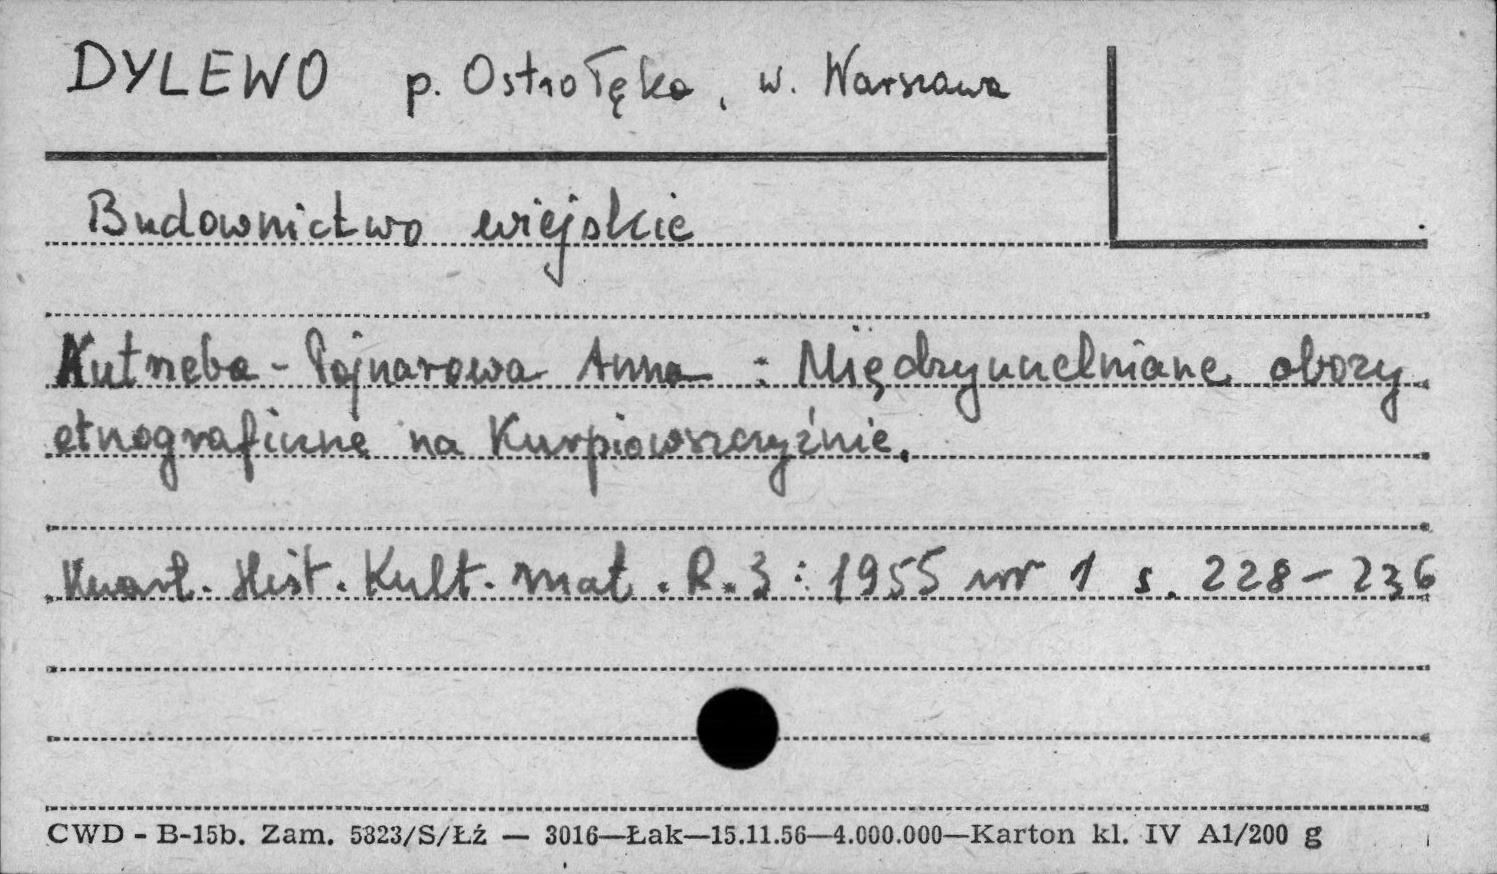 DYLEWO p. Ostrołęka, w. Warszawa
Budownictwo wiejskie
Kutrzeba-Pojnarowa Anna: Międzyuczelniane obozy
etnograficzne na Kurpiowszczyźnie.
Kwart. Hist. Kult. mat. R. 3: 1955 nr 1 s. 228-236
CWD - B-15b. Zam. 5823/S/Łź — 3016—Łak—15.11.56—4.000.000—Karton kl. IV A1/200 g